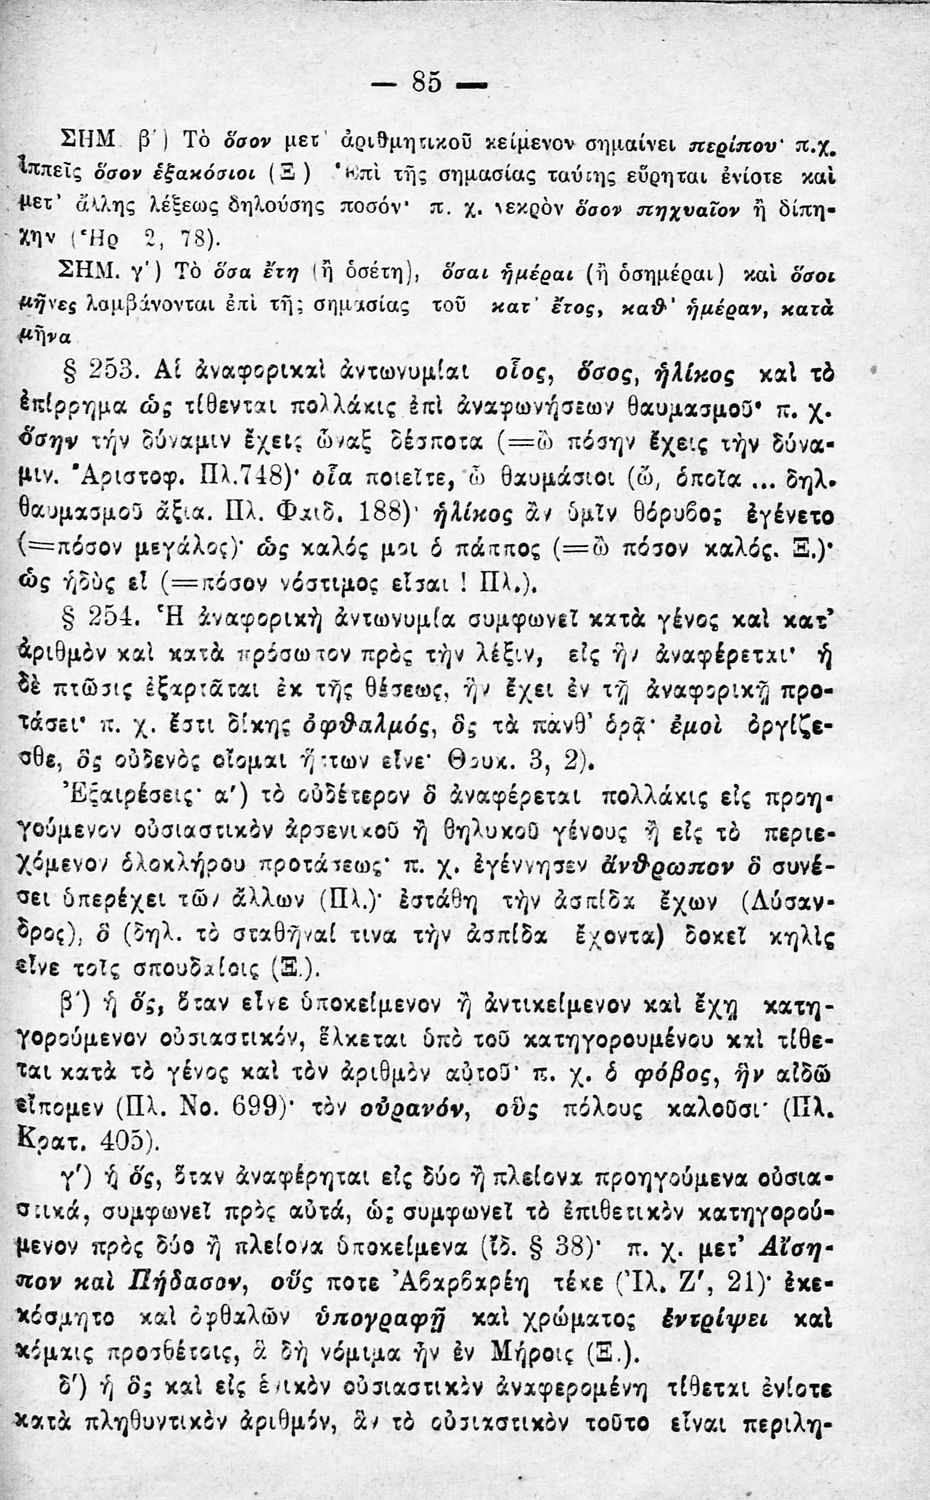 — 85 —
ΣΗΜ β΄) Τὸ ὅσον μετ᾽ ἀριθμητικοῦ κείμενον σημαίνει περίπου· π.χ.
ἱππεῖς ὅσον ἑξακόσιοι (Ξ ) Ἐπὶ τῆς σημασίας ταύτης εὕρηται ἐνίοτε καὶ
μετ᾽ ἄλλης λέξεως δηλούσης ποσόν· π. χ. νεκρὸν ὅσον πηχυαῖον ἢ δίπη-
χην (Ἡρ 2, 78).
ΣΗΜ. γ΄) Τὸ ὅσα ἔτη (ἢ ὁσέτη), ὅσαι ἡμέραι (ἢ ὁσημέραι) καὶ ὅσοι
μῆνες λαμβάνονται ἐπὶ τῆς σημασίας τοῦ κατ᾽ ἔτος, καθ᾽ ἡμέραν, κατὰ
μῆνα
§ 253. Αἱ ἀναφορικαὶ ἀντωνυμίαι οἷος, ὅσος, ἡλίκος καὶ τὸ
ἐπίρρημα ὡς τίθενται πολλάκις ἐπὶ ἀναφωνήσεων θαυμασμοῦ· π. χ.
ὅσην τὴν δύναμιν ἔχεις ὦναξ δέσποτα (=ὢ πόσην ἔχεις τὴν δύνα-
μιν. Ἀριστοφ. Πλ.748)· οἷα ποιεῖτε, ὦ θαυμάσιοι (ὤ, ὁποῖα ... δηλ.
θαυμασμοῦ ἄξια. Πλ. Φαιδ. 188)· ἡλίκος ἂν ὑμῖν θόρυβος ἐγένετο
(=πόσον μεγάλος)· ὡς καλός μοι ὁ πάππος (=ὢ πόσον καλός. Ξ.)·
ὡς ἡδὺς εἶ (=πόσον νόστιμος εἶσαι ! Πλ.).
§ 254. Ἡ ἀναφορικὴ ἀντωνυμία συμφωνεῖ κατὰ γένος καὶ κατ᾽
ἀριθμὸν καὶ κατὰ πρόσωπον πρὸς τὴν λέξιν, εἰς ἣν ἀναφέρεται· ἡ
δὲ πτῶσις ἐξαρτᾶται ἐκ τῆς θέσεως, ἣν ἔχει ἐν τῇ ἀναφορικῇ προ-
τάσει· π. χ. ἔστι δίκης ὀφθαλμός, ὃς τὰ πάνθ᾽ ὁρᾷ· ἐμοὶ ὀργίζε-
σθε, ὃς οὐδενὸς οἴομαι ἥττων εἶνε· Θουκ. 3, 2).
Ἐξαιρέσεις· α΄) τὸ οὐδέτερον ὃ ἀναφέρεται πολλάκις εἰς προη-
γούμενον οὐσιαστικὸν ἀρσενικοῦ ἢ θηλυκοῦ γένους ἢ εἰς τὸ περιε-
χόμενον ὁλοκλήρου προτάσεως· π. χ. ἐγέννησεν ἄνθρωπον ὃ συνέ-
σει ὑπερέχει τῶν ἄλλων (Πλ.)· ἐστάθη τὴν ἀσπίδα ἔχων (Λύσαν-
δρος), ὃ (δηλ. τὸ σταθῆναί τινα τὴν ἀσπίδα ἔχοντα) δοκεῖ κηλὶς
εἶνε τοῖς σπουδαίοις (Ξ.).
β΄) ἡ ὅς, ὅταν εἶνε ὑποκείμενον ἢ ἀντικείμενον καὶ ἔχῃ κατη-
γορούμενον οὐσιαστικόν, ἕλκεται ὑπὸ τοῦ κατηγορουμένου καὶ τίθε-
ται κατὰ τὸ γένος καὶ τὸν ἀριθμὸν αὐτοῦ· π. χ. ὁ φόβος, ἣν αἰδῶ
εἴπομεν (Πλ. Νο. 699)· τὸν οὐρανόν, οὓς πόλους καλοῦσι· (Πλ.
Κρατ. 405).
γ΄) ἡ ὅς, ὅταν ἀναφέρηται εἰς δύο ἢ πλείονα προηγούμενα οὐσια-
στικά, συμφωνεῖ πρὸς αὐτά, ὡς συμφωνεῖ τὸ ἐπιθετικὸν κατηγορού-
μενον πρὸς δύο ἢ πλείονα ὑποκείμενα (ἴδ. § 38)· π. χ. μετ᾽ Αἴση-
πον καὶ Πήδασον, οὕς ποτε Ἀβαρβαρέη τέκε (Ἰλ. Ζ΄, 21)· ἐκε-
κόσμητο καὶ ὀφθαλῶν ὑπογραφῇ καὶ χρώματος ἐντρίψει καὶ
κόμαις προσθέτοις, ἃ δὴ νόμιμα ἦν ἐν Μήροις (Ξ.).
δ΄) ἡ ὃς καὶ εἰς ἑνικὸν οὐσιαστικὸν ἀναφερομένη τίθεται ἐνίοτε
κατὰ πληθυντικὸν ἀριθμόν, ἂν τὸ οὐσιαστικὸν τοῦτο εἶναι περιλη-